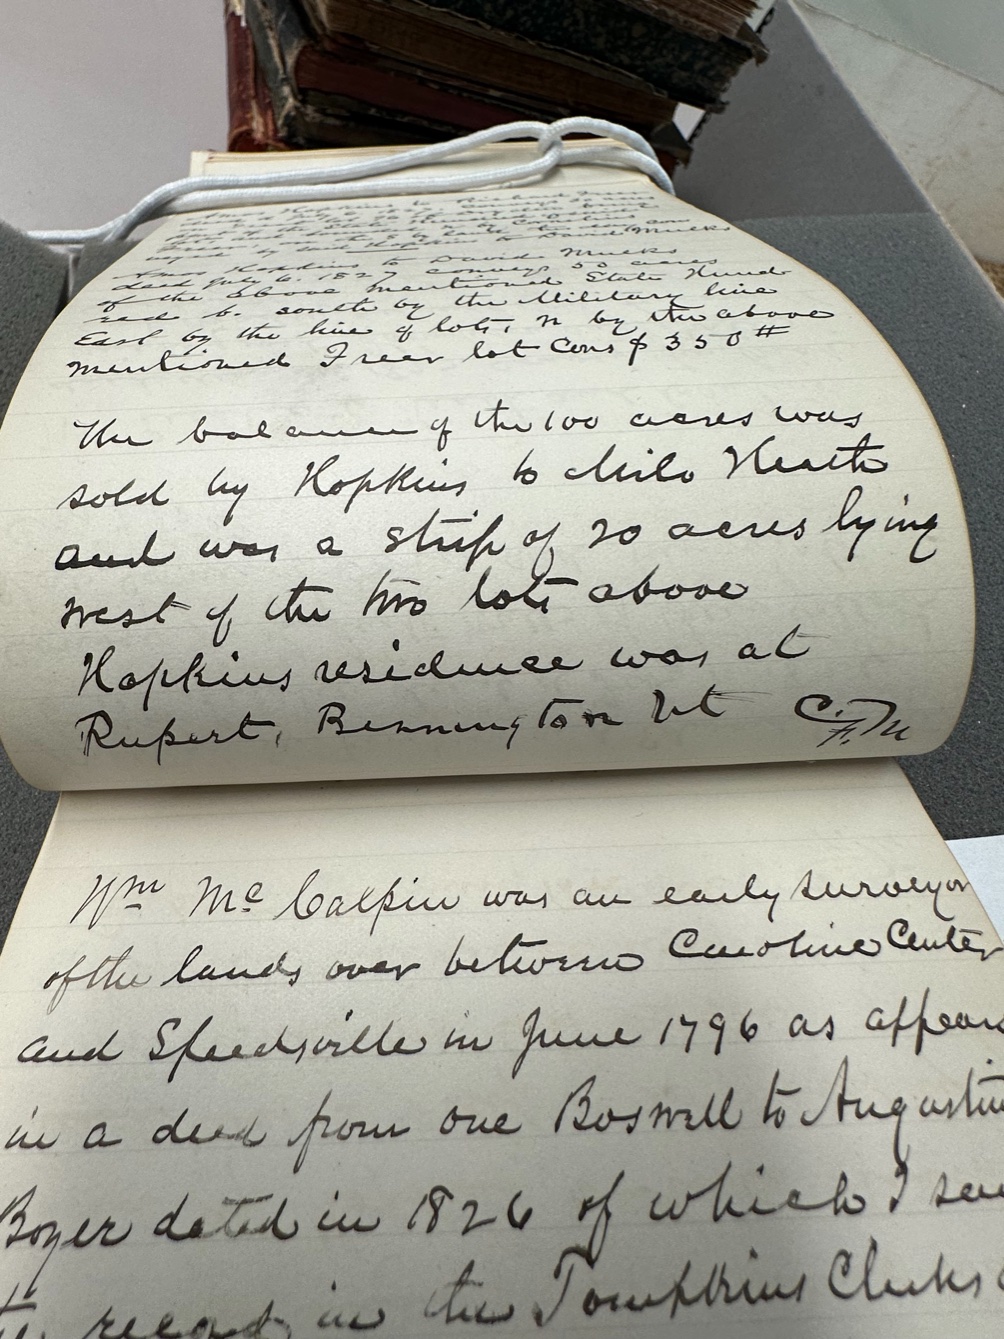 Amos Hopkins to David Mulks
deed July 6. 1827 conveys 50 acres
of the above mentioned State Hund-
red b. south by the Military line
East by the line of lots, N by the above
mentioned Freer lot Cons $350#
The balance of the 100 acres was
sold by Hopkins to Milo Heath
and was a strip of 20 acres lying
west of the two lots above
Hopkins residence was at
Rupert, Bennington Vt C.F.M
Wm Mc Calpin was an early surveyor
of the lands over between Caroline Center
and Speedsville in June 1796 as appears
in a deed from one Boswell to Augustin
Boyer dated in 1826 of which I saw
record in the Tompkins Clerks